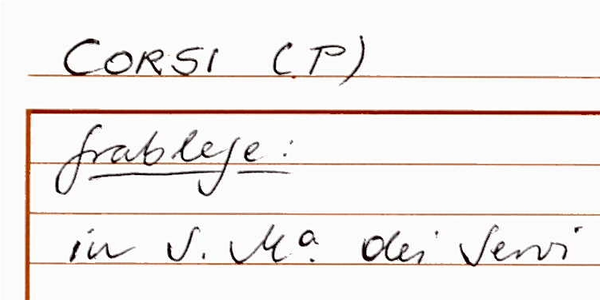 CORSI (P)
Grablege:
in S. Mª. dei Servi